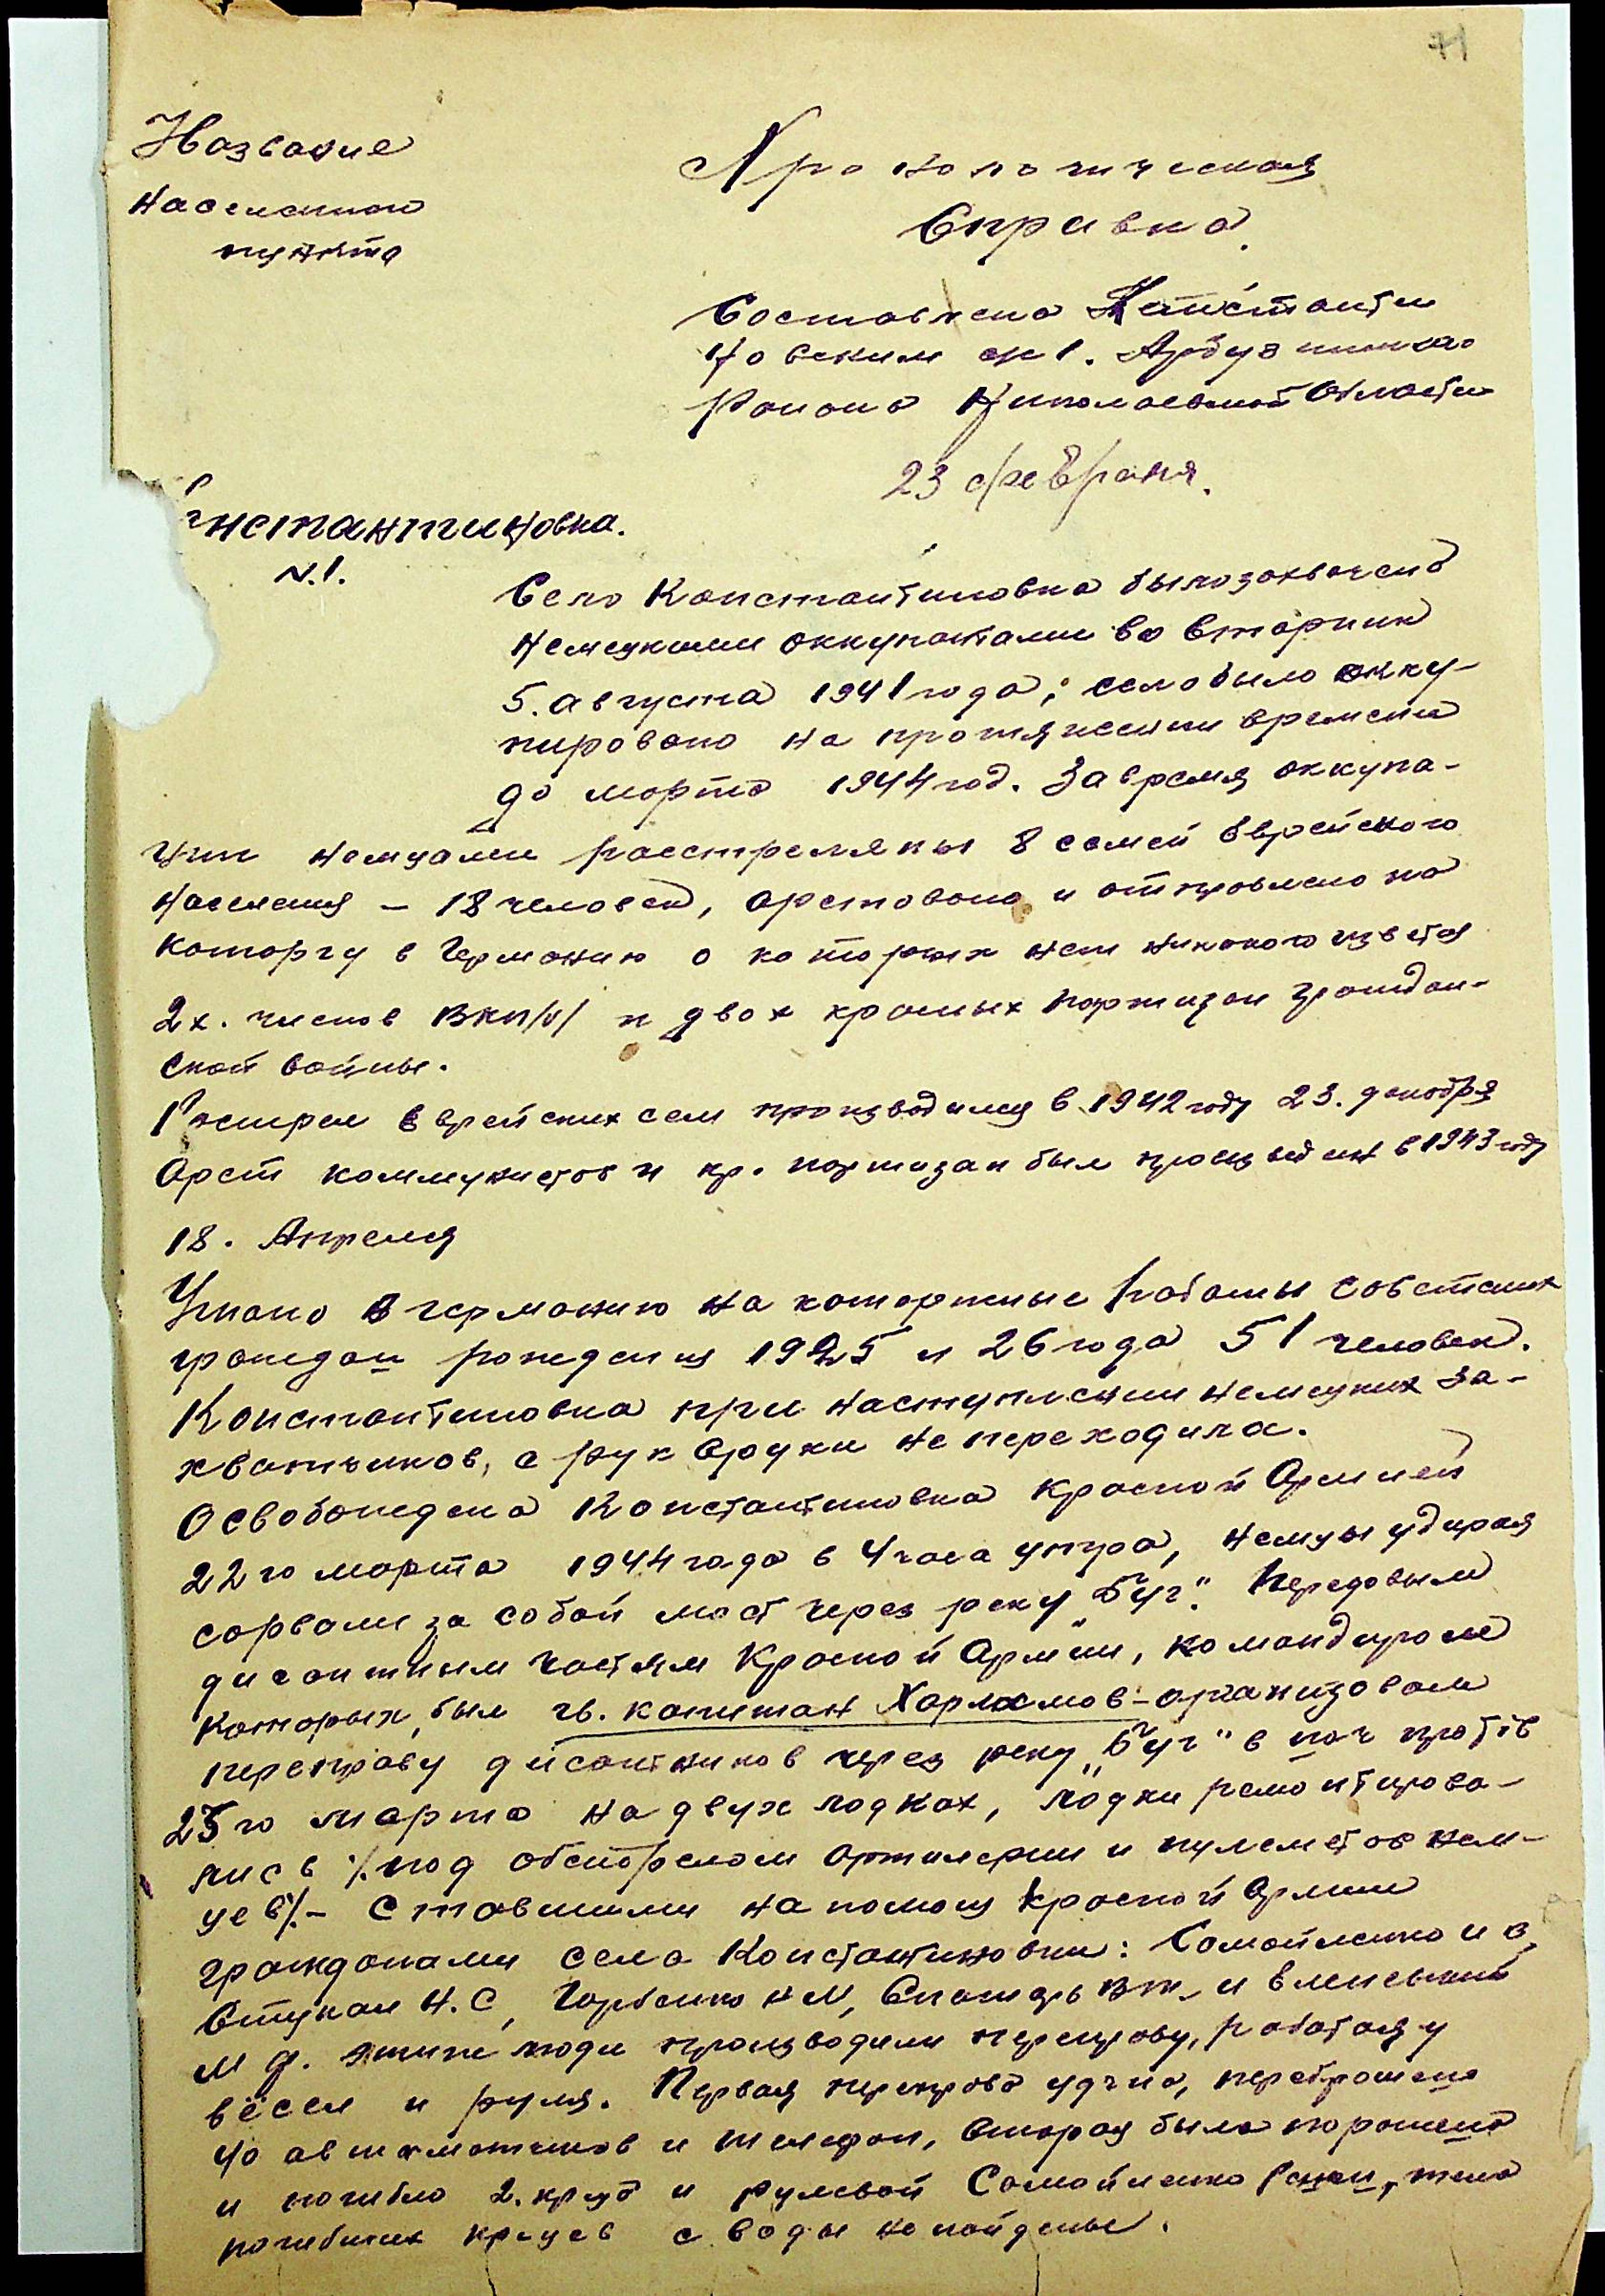 71
Название
населенного
пункта
Хронологическая
Справка.
Составлена Константи
новским с/с 1. Арбузинского
Района Николаевской Области
23 февраля.
нстантиновка.
N.1.
Село Константиновка было захвачено
немецкими оккупантами во вторник
5. августа 1941 года; село было окку-
пировано на протяжении времени
до марта 1944 год. За время оккупа-
ции немцами расстреляны 8 семей Еврейского
населения – 18 человек, арестовано и отправлено на
каторгу в Германию о которых нет никакого изветия
2х. членов ВКП/б/ и двох красных партизан граждан-
ской войны.
Росстрел Еврейских сем производился в 1942 году 23. декабря
Арест коммунистов и кр. партизан был произведен в 1943 году
18. Апреля
Угнано в германию на каторжные работы советских
граждан рождения 1925 и 26 года 51 человек.
Константиновка при наступлении немецких за-
хватчиков, с рук в руки не переходила.
Освобождена Константиновка Красной Армией
22го марта 1944 года в 4 часа утра, немцы удирая
сорвали за собой мост через реку „Буг“. Передовым
дисантным частям Красной Армии, командиром
которых, был гв. капитан Харламов – организовали
переправу дисантников через реку „Буг“ в ноч против
25го марта на двух лодках, лодки ремонтирова-
лись /под обстрелом артилерии и пулеметов нем-
цев/. – Ставшими на помощ Красной Армии
гражданами села Константиновки: Самойленко и В.
Стукан Н.С, Горбенко Н М, и
М Ф. эти же люди производили переправу, работая у
вёсел и руля. Первая переправа удачна, переброшено
40 автоматчиков и телефон, вторая была поражена
и погибло 2. и рулевой Самойленко тела
погибших с воды не найдены.